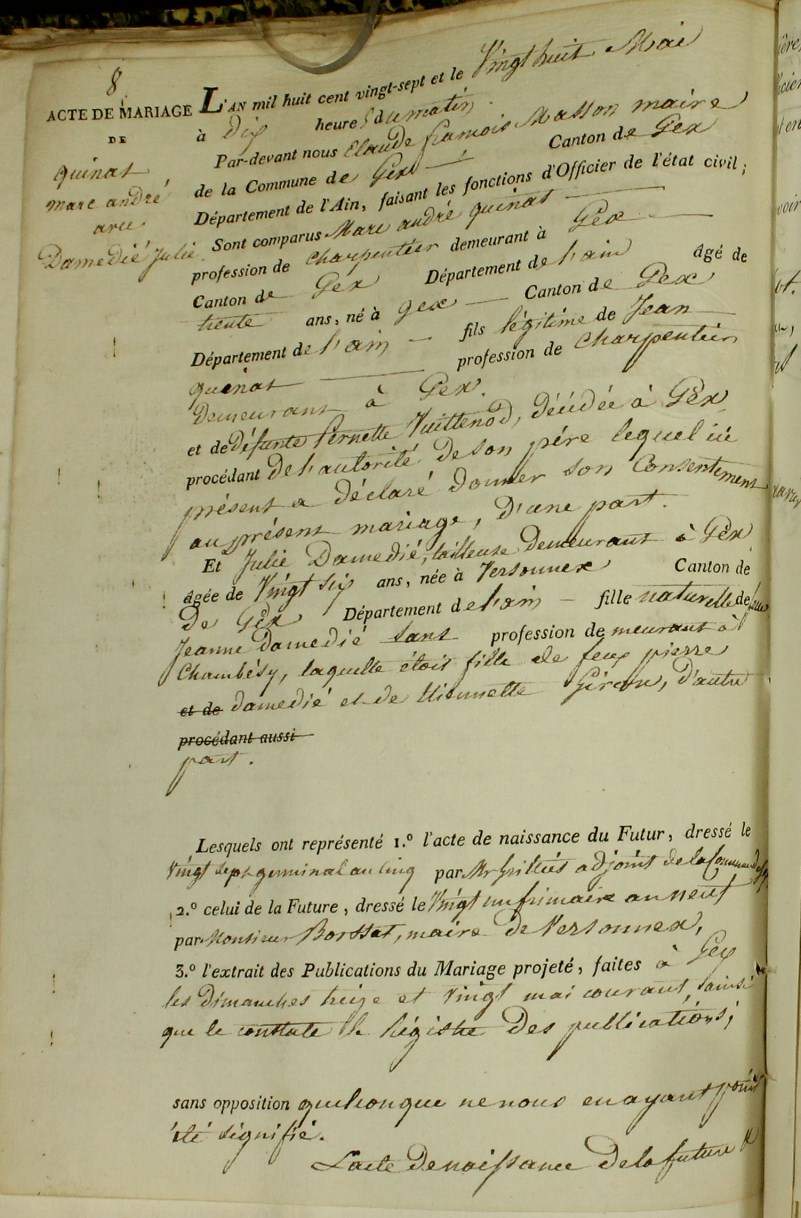 8
ACTE DE MARIAGE
DE
quinat,
marc andré
avec
Damedié Julie
L'AN mil huit cent vingt-sept et le Vingt huit Mai
à Dix heures du matin.
Par-devant nous Claude françois Masson maire
de la Commune de Gex Canton de Gex
Département de l'Ain, faisant les fonctions d'Officier de l'état civil;
Sont comparus Marc andré quinat
profession de Charpentier demeurant à Gex
Canton de Gex Département de l'ain âgé de
trente ans, né à gex Canton de Gex
Département de l'ain fils légitime de Jean
quinat profession de Charpentier
Demeurant à Gex.
et de Défunte Pernette Vuittenod, décédée à Gex
procédant De l'autorité De son père lequel ici
présent a Déclaré Donner son Consentement
au présent mariage, D'une part.
Et Julie Damedié, tailleuse Demeurant à Gex
âgée de Vingt six ans, née à Versonnex Canton de
De Gex Département de l'ain fille naturelle de
Jeanne Damedié sans profession demeurant à
Chambésy, laquelle étoit fille de feux pierre
et de Damedié et de Girou, D'autre
procédant aussi
part.
Lesquels ont représenté 1.º l'acte de naissance du Futur, dressé le
Vingt sept germinal an cinq par Mr adjoint de la Commune de
2.º celui de la Future, dressé le Vingt un frimaire an neuf
par Monsieur Borssat, maire de Versonnex,
3.º l'extrait des Publications du Mariage projeté, faites à Gex
les Dimanches treize et Vingt mai courant, ainsi
que le constate le Régistre Des publications;
sans opposition quelconque ne nous en ayant point
été signifié.
L'acte De naissance De la future